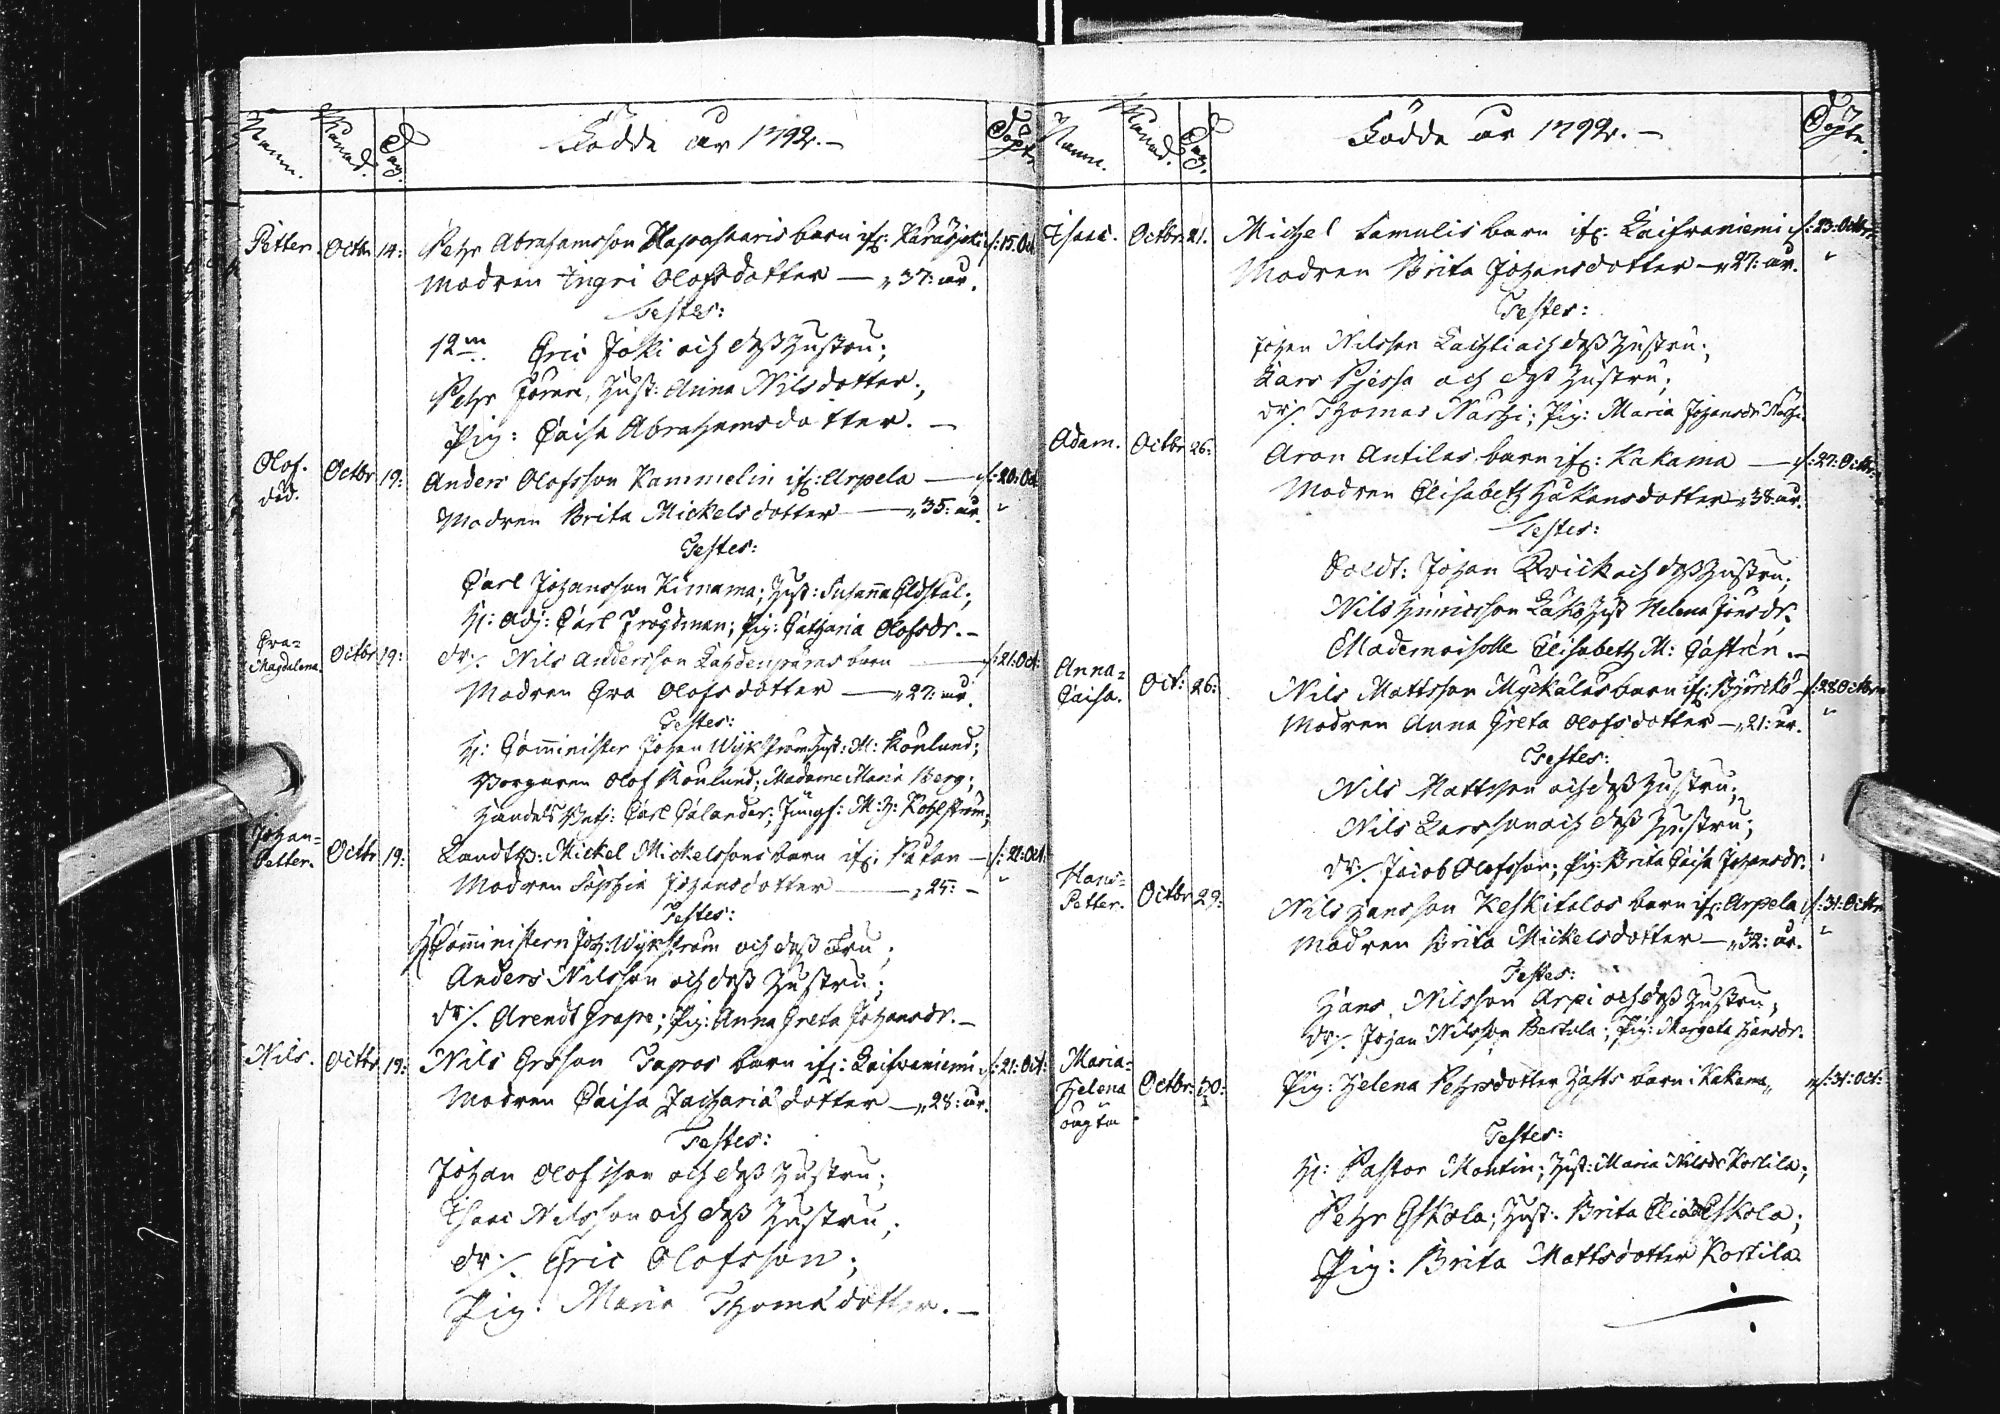 Namn. Månad. Dag. Födde år 1792. — Döpte
Petter. Octbr 14: Pehr Abrahamsson Hapasaaris barn if: Karungi s: 15. Oct
Modren Ingri Olofsdotter — „ 37: år.
Testes:
12m Eric Joki och dess hustru;
Pehr Jönsson, Hust: Anna Nilsdotter;
Pig: Caisa Abrahamsdotter. —
Olof. död. Octbr 19: Anders Olofsson Kammelin if: Arpela — s: 20: Oct
Modren Brita Mickelsdotter — „ 35: år. "
Testes:
Carl Johansson Kimama; Hust: Susanna Eldstål;
H: Adj: Carl Frodman; Pig: Catharia Olofsdr. —
Eva= Magdalena. Octbr 19: dr/. Nils Andersson Lahdenperäs barn — s: 21: Oct:
Modren Eva Olofsdotter — „ 27: år.
Testes:
H: Comminister Johan Wykström Hust: M: Rönlund;
Borgaren Olof Rönlund; Madame Maria Berg;
Handels Betj: Carl Calander; Jungf: M: H: Kohlström;
Johan= Petter. Octbr 19: Landtb: Mickel Mickelssons barn if: Räkan — s: 21: Oct:
Modren Sophia Johansdotter — „ 25: — "
Testes:
H Comministern Joh: Wykström och dess Fru;
Anders Nilsson och dess Hustru;
dr/. Arendt Grape; Pig: Anna Greta Johansdr. —
Nils. Octbr 19: Nils Ersson Tapios barn if: Laifvaniemi s: 21: Oct:
Modren Caisa Zacharia dotter — „ 28: år.
Testes:
Johan Olofsson och dess Hustru;
Isaac Nilsson och dess Hustru;
dr/. Eric Olofsson;
Pig: Maria Thoma dotter. —
Namn. Månad. Dag. Födde år 1792. — Döpte.
Isaac. Octbr 21. Michel Samulis barn if: Laifvaniemi s: 23: Octbr
Modren Brita Johansdotter — „ 27: år. "
Testes:
Johan Nilsson Lachti och dess Hustru;
Lars Pjessa och dess Hustru;
dr/. Thomas Närhi; Pig: Maria Johansdr Närhi.
Adam. Octbr 26: Aron Antilas barn if: Kakama — s: 27: Octbr
Modren Elisabeth Håkansdotter „ 38: år.
Testes:
Soldt: Johan Qvick och dess Hustru;
Nils Hinricsson Hust Helena Jönsdr;
Mademoiselle Elisabeth M: Castrén. —
Anna= Caisa. Oct: 26: Nils Mattsson Myckäläs barn if: Björckö s: 28 Octbr
Modren Anna Greta Olofsdotter — „ 21: år. "
Testes:
Nils Mattsson och dess Hustru;
Nils Larsson och dess Hustru;
dr/. Jacob Olofsson; Pig: Brita Caisa Johansdr:
Hans= Petter. Octbr 29: Nils Hansson Keskitalos barn if: Arpela s: 31: Octbr
Modren Brita Mickelsdotter — „ 32: år. "
Testes:
Hans Nilsson Arpi och dess Hustru;
dr/. Johan Nilsson Bertula; Pig: Margeta Hansdr.
Maria= Helena Octbr: 30: Pig: Helena Pehrsdotter Hasts barn i Kakama „ s: 31: Oct:
oägta
Testes:
H: Pastor Montin; Hust: Maria Nilsdr Kortila;
Pehr Eskola; Hust: Brita Eliadr Eskola;
Pig: Brita Mattsdotter Kortila